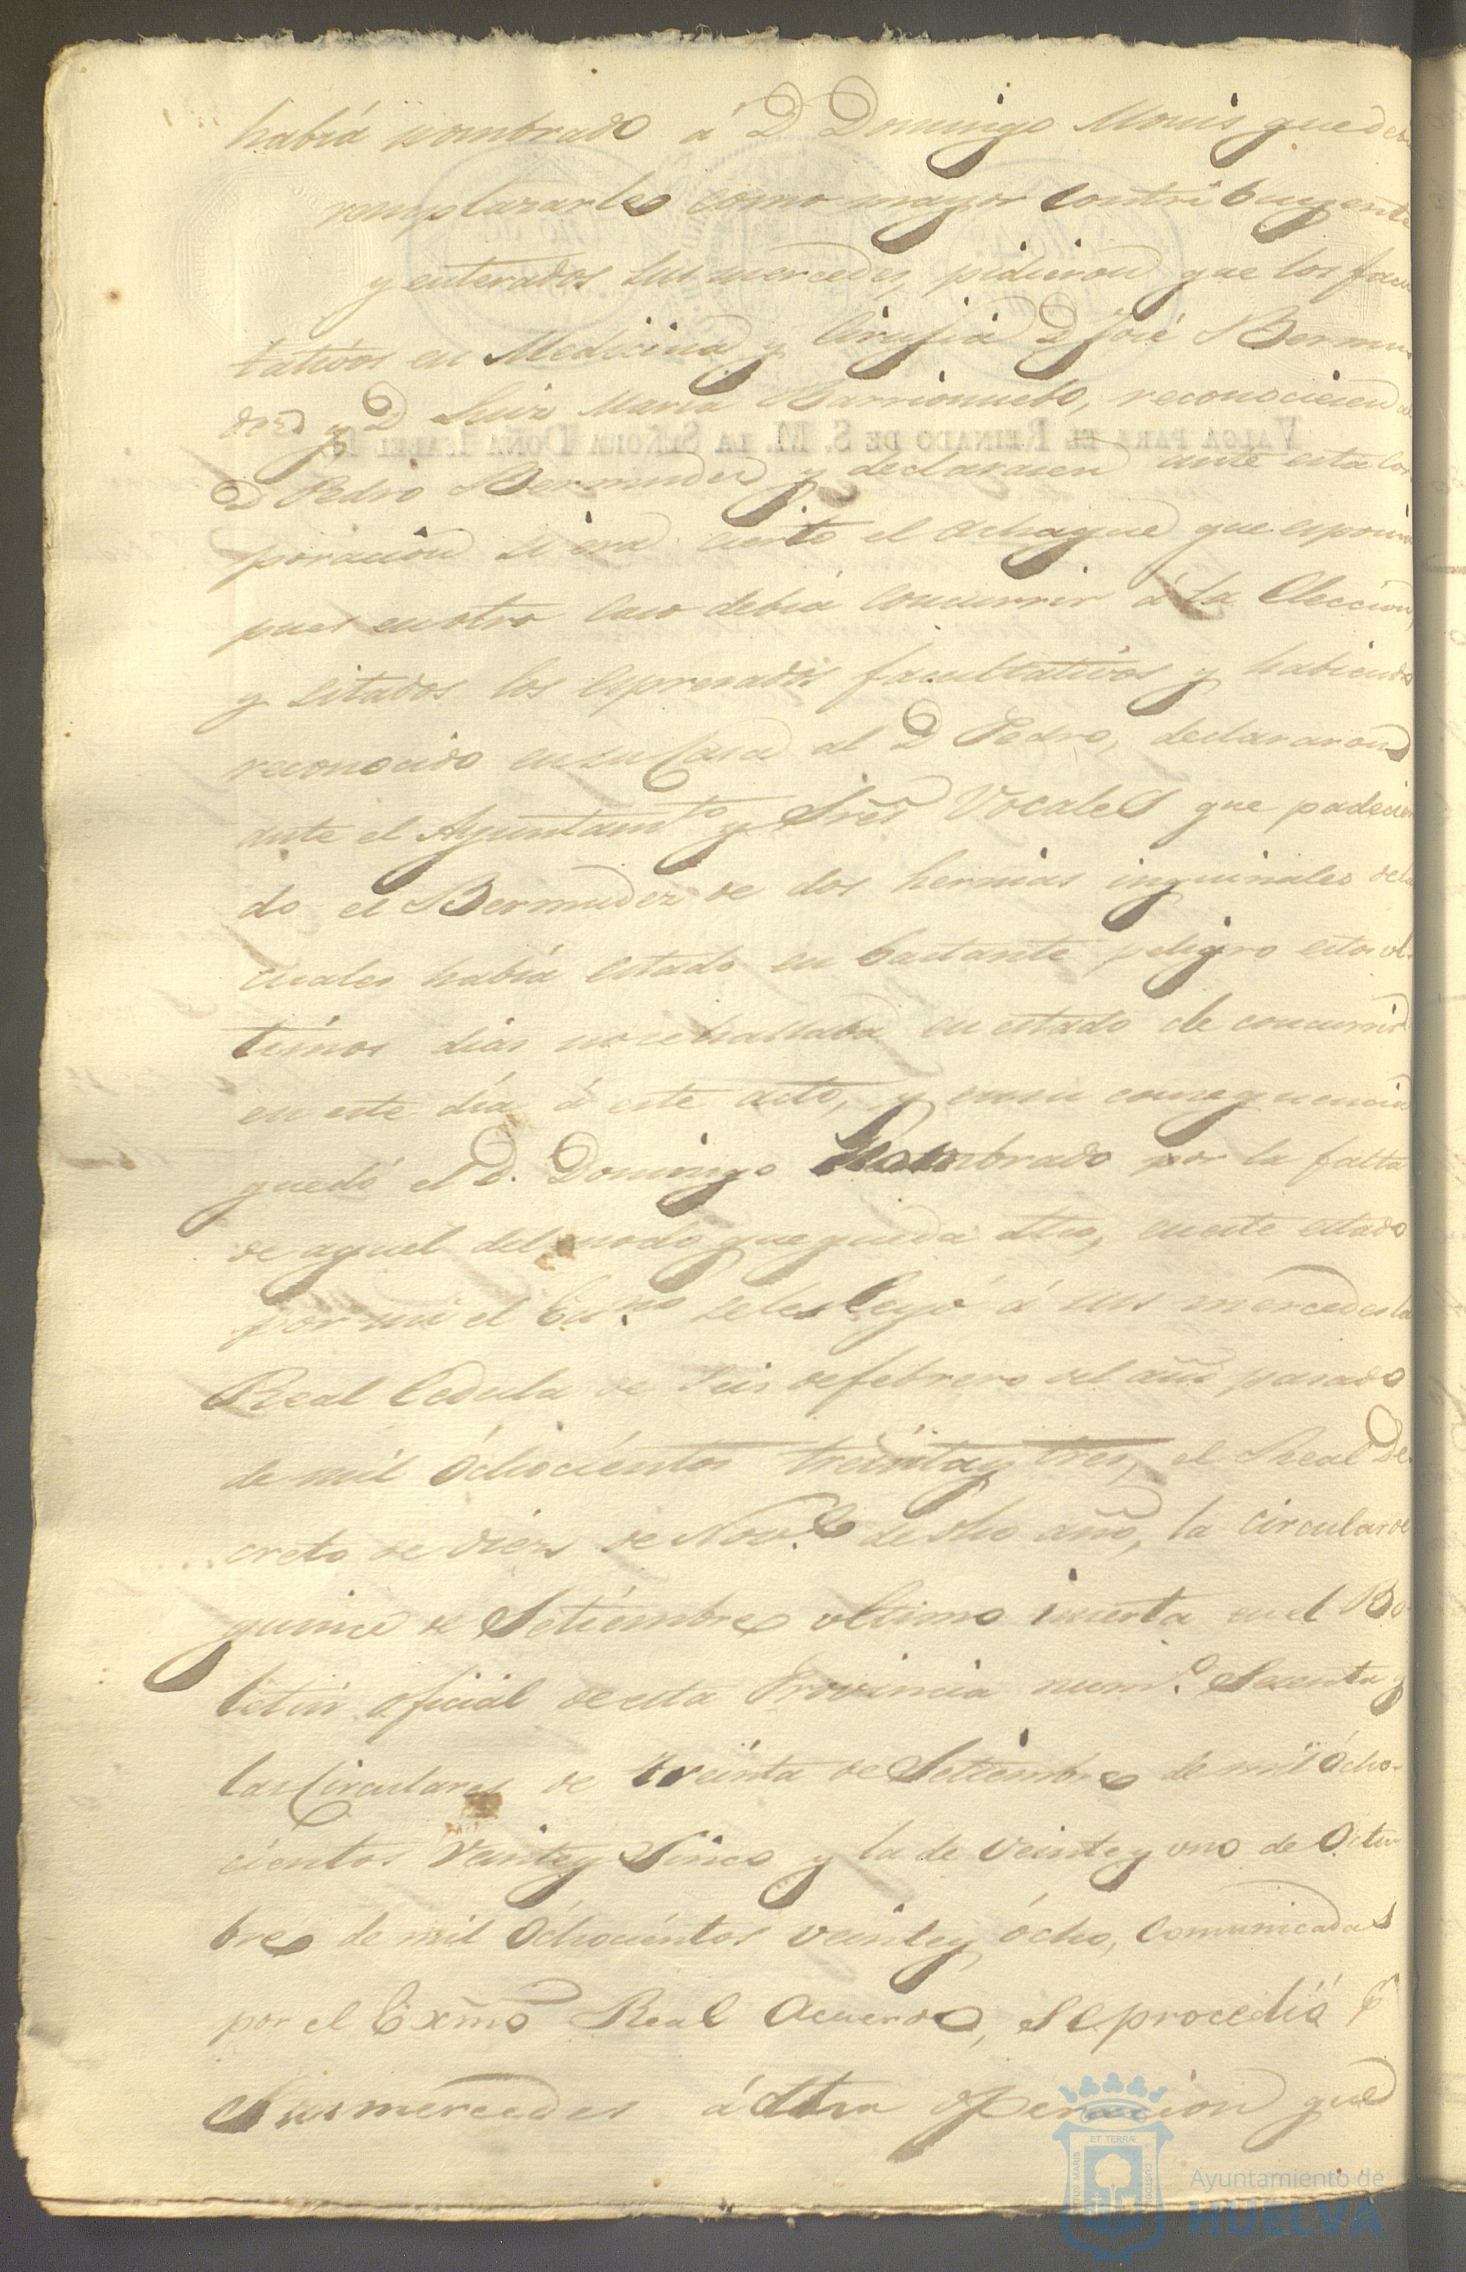 había nombrado á D Domingo Monis que debe
remplazarle como mayor contribuyente
y enterados sus mercedes, pidieron que los facu
tativos en Medicina y Cirujia D José Bermu
dez y D Luis Maria Barrionuebo, reconociesen al
D Pedro Bermudez y declarasen ante esta Cor
poracion si era cierto el achaque que esponia
pues en otro caso debia concurrir á la Eleccion,
y citados los espresados facultativos y habiendo
reconocido en su Casa al D Pedro, declararon
ante el Ayuntamto y Sres Vocales que padecien
do el Bermudez de dos hernias inguinales de las
cuales había estado en bastante peligro estos ul
timos dias no se hallaba en estado de concurrir
en este día á este acto, y en su consequencia
quedó el D. Domingo Nombrado por la falta
de aquel del modo que queda dho, en este estado
por mi el Es.no se les leyó á sus mercedes la
Real Cedula de Seis de febrero del año pasado
de mil Ochocientos treinta y tres, el Real De
creto de diez de Nov.e de dho año, la circular de
quince de Setiembre ultimo inserta en el Bo
letin oficial de esta Provincia num.o Sesenta y
las Circulares de treinta de Setiembre de mil Ocho-
cientos Veinte y Sinco y la de Veinte y uno de Octu
bre de mil Ochocientos veinte y ócho, Comunicadas
por el Exmo Real Acuerdo, se procedió p
Sus mercedes á dha operacion que
VALGA PARA EL REINADO DE S. M. LA SEÑORA DOÑA ISABEL II.
ET TERRÆ
MARIS
CUSTODIA
Ayuntamiento de
HUELVA